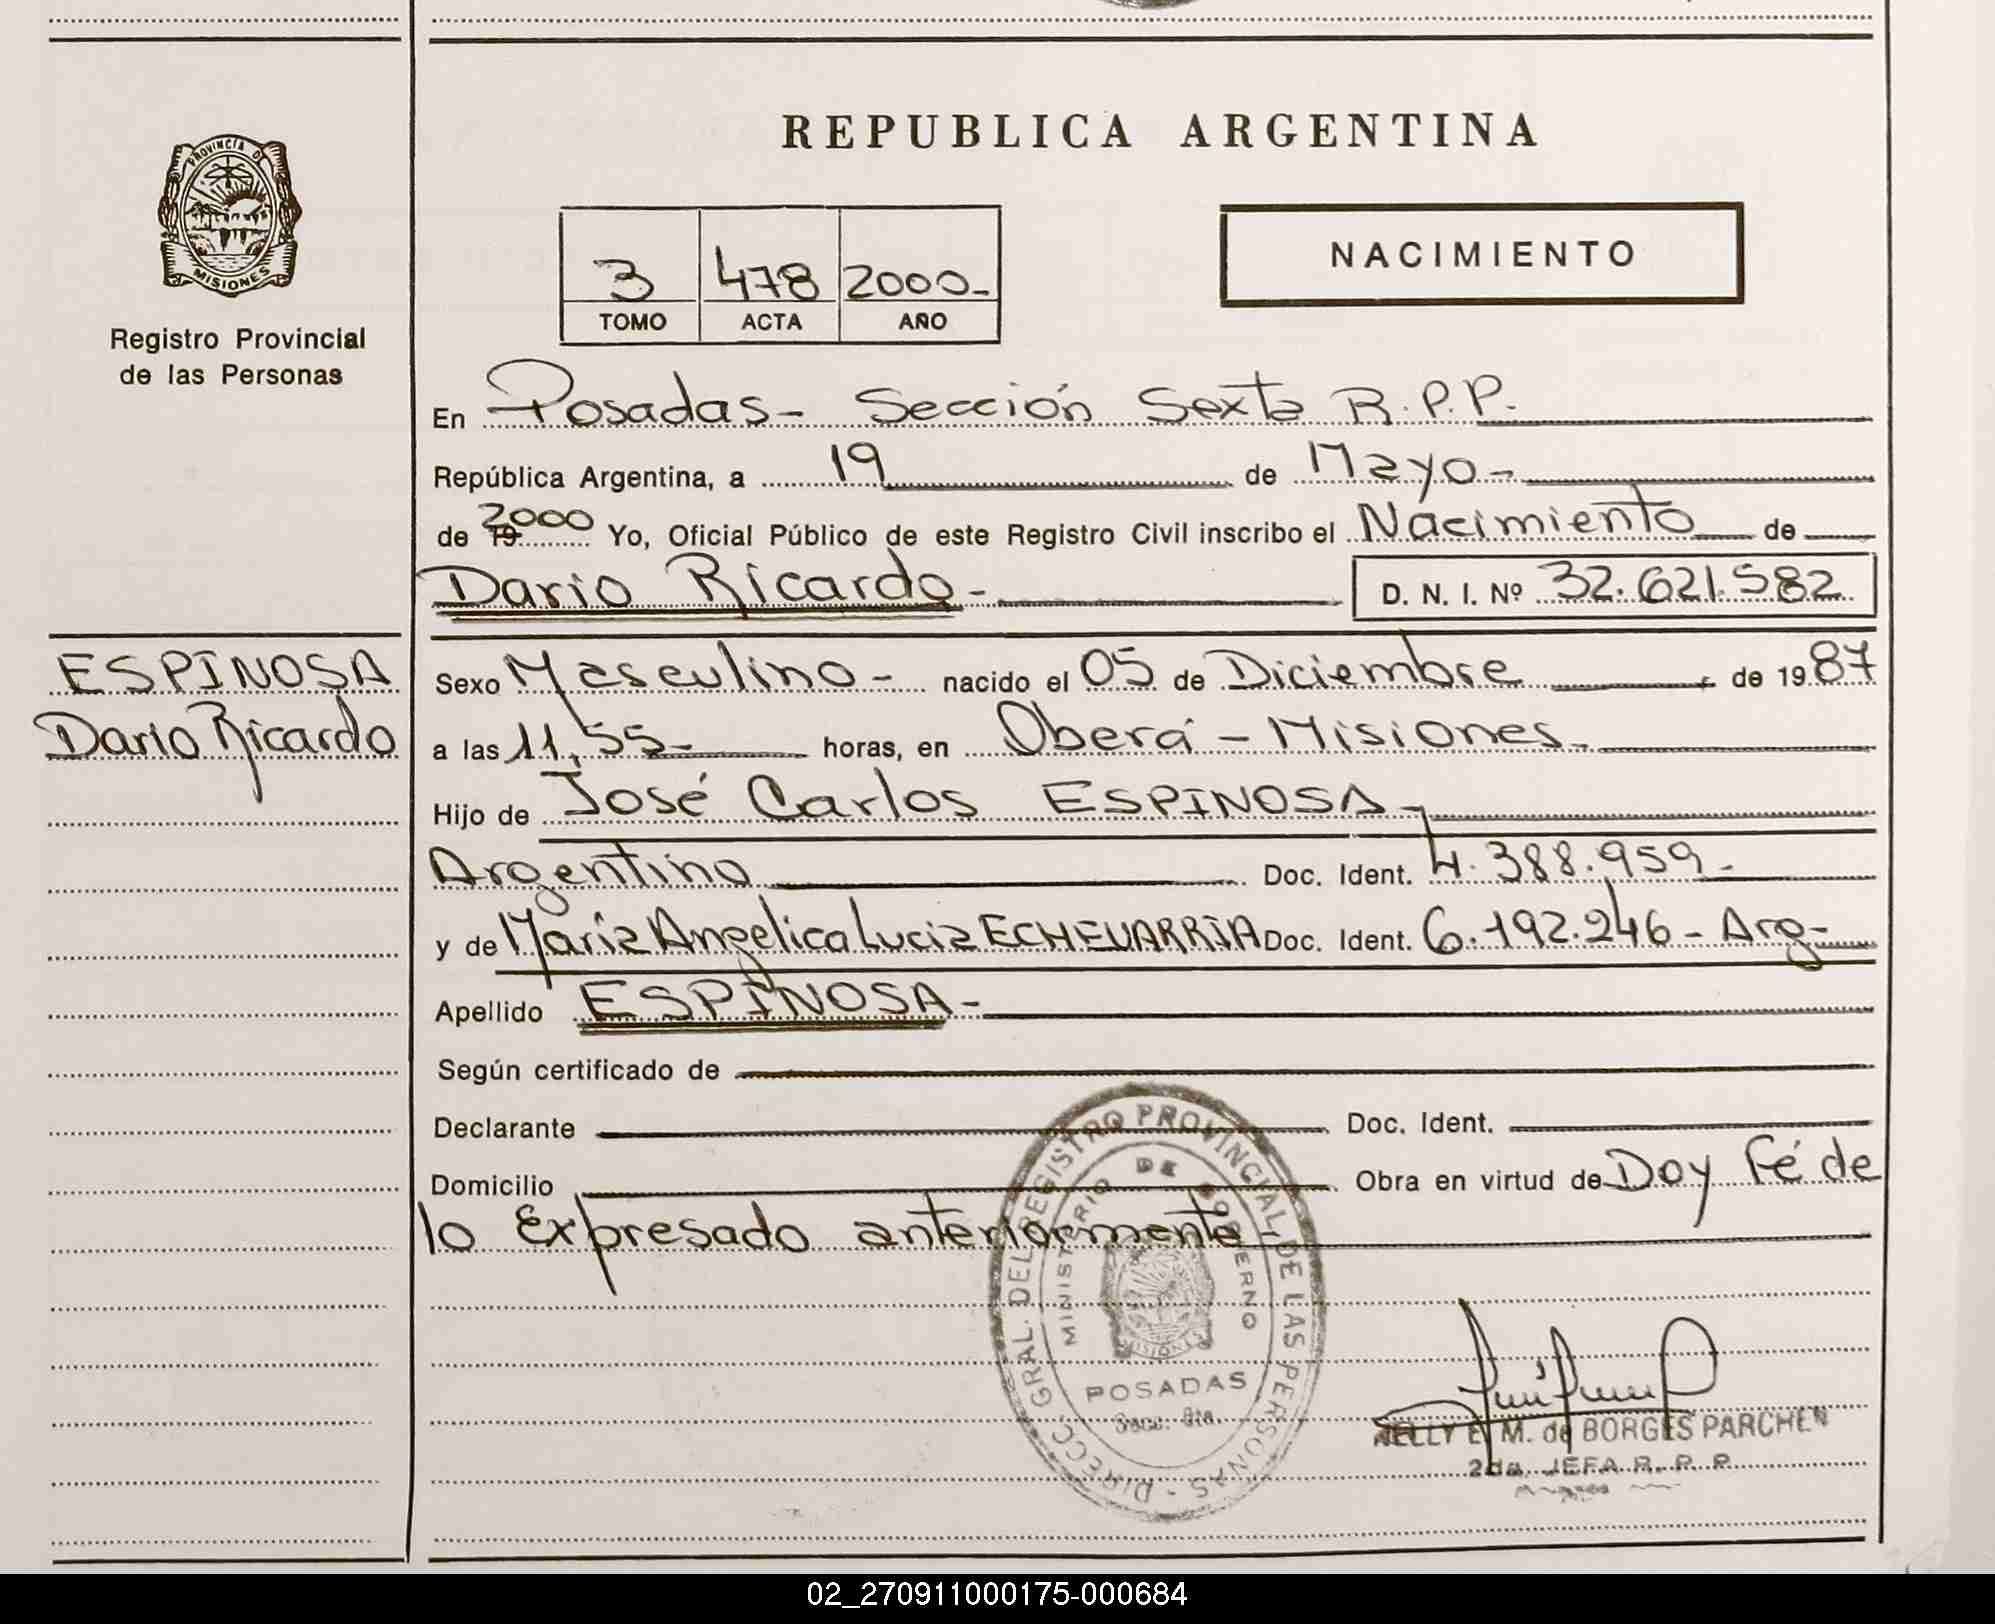 REPUBLICA ARGENTINA
PROVINCIA D
MISIONES
Registro Provincial
de las Personas
NACIMIENTO
3 478 2000-
TOMO ACTA AÑO
En Posadas- Sección Sexta R.P.P.
República Argentina, a 19 de Mayo-
de 19 2000 Yo, Oficial Público de este Registro Civil inscribo el Nacimiento de
Dario Ricardo- D. N. I. Nº 32.621.582
ESPINOSA
Dario Ricardo
Sexo Masculino- nacido el 05 de Diciembre de 1987
a las 11,55- horas, en Oberá - Misiones-
Hijo de José Carlos ESPINOSA-
Argentino Doc. Ident. 4.388.959-
y de María Angelica Lucia ECHEVARRIA Doc. Ident. 6.192.246- Arg-
Apellido ESPINOSA-
Según certificado de
Declarante Doc. Ident.
Domicilio Obra en virtud de Doy Fé de
lo Expresado anteriormente-
DIRECC. GRAL. DEL REGISTRO PROVINCIAL DE LAS PERSONAS -
MINISTERIO DE GOBIERNO
MISIONES
POSADAS
Secc. 6ta.
NELLY E. M. de BORGES PARCHEN
2da. JEFA R. P. P.
02_270911000175-000684